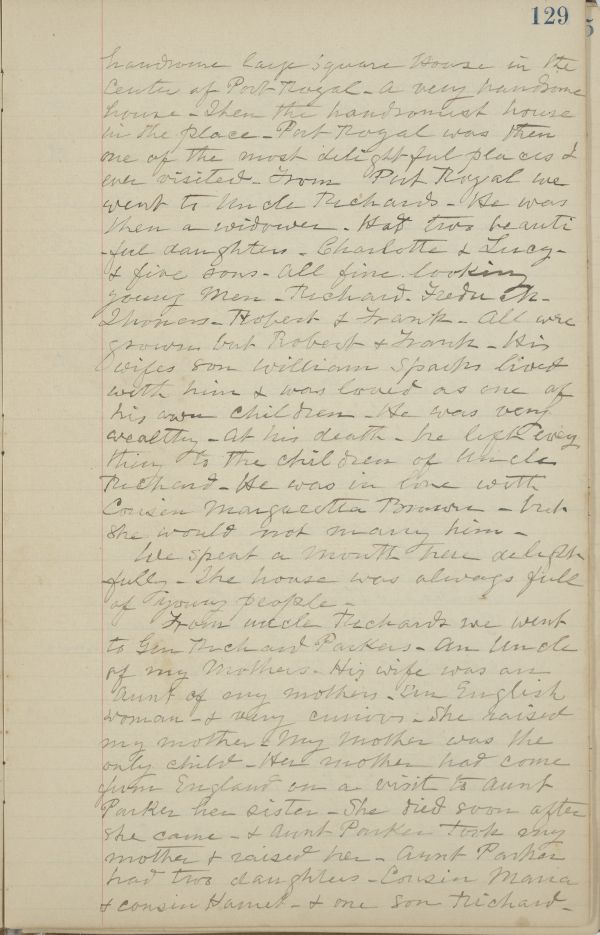 129
handsome large square House in the
Center of Port Royal - A very handsome
house - Then the handsomest house
in the place - Port Royal was then
one of the most delightful places I
ever visited - From Port Royal we
went to Uncle Richards - He was
then a widower - Had two beauti
-ful daughters - Charlotte & Lucy -
& five sons - All fine looking
young Men - Richard - Fredrick -
Thomas - Robert & Frank - All were
grown but Robert & Frank - His
wifes son William Sparks lived
with him & was loved as one of
his own children - He was very
wealthy - At his death - he left every
thing to the children of Uncle
Richard - He was in love with
Cousin Margaretta Brown - but
she would not marry him -
We spent a month here delight
fully - The house was always full
of young people -
From uncle Richards we went
to Gen Richard Parkers - An Uncle
of my Mothers - His wife was an
Aunt of my mothers - An English
woman - & very curious - She raised
my mother - My Mother was the
only child - Her mother had come
from England on a visit to Aunt
Parker her sister - She died soon after
she came - & Aunt Parker took my
mother & raised her - Aunt Parker
had two daughters - Cousin Maria
& cousin Harriet - & one son Richard -